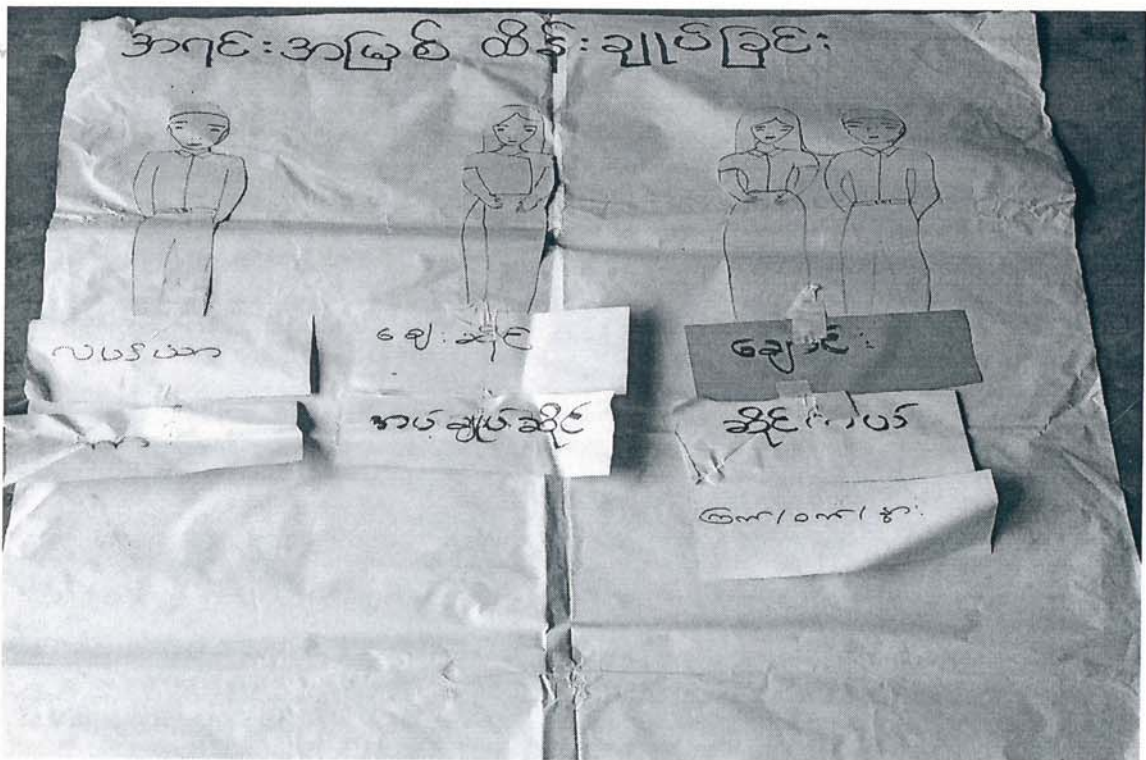 အရင်းအမြစ် ထိန်းချုပ်ခြင်း
လယ်ယာ
ဈေးဆိုင်
ချောင်း
အပ်ချုပ်ဆိုင်
ဆိုင်ကယ်
ကြက်/ဝက်/နွား